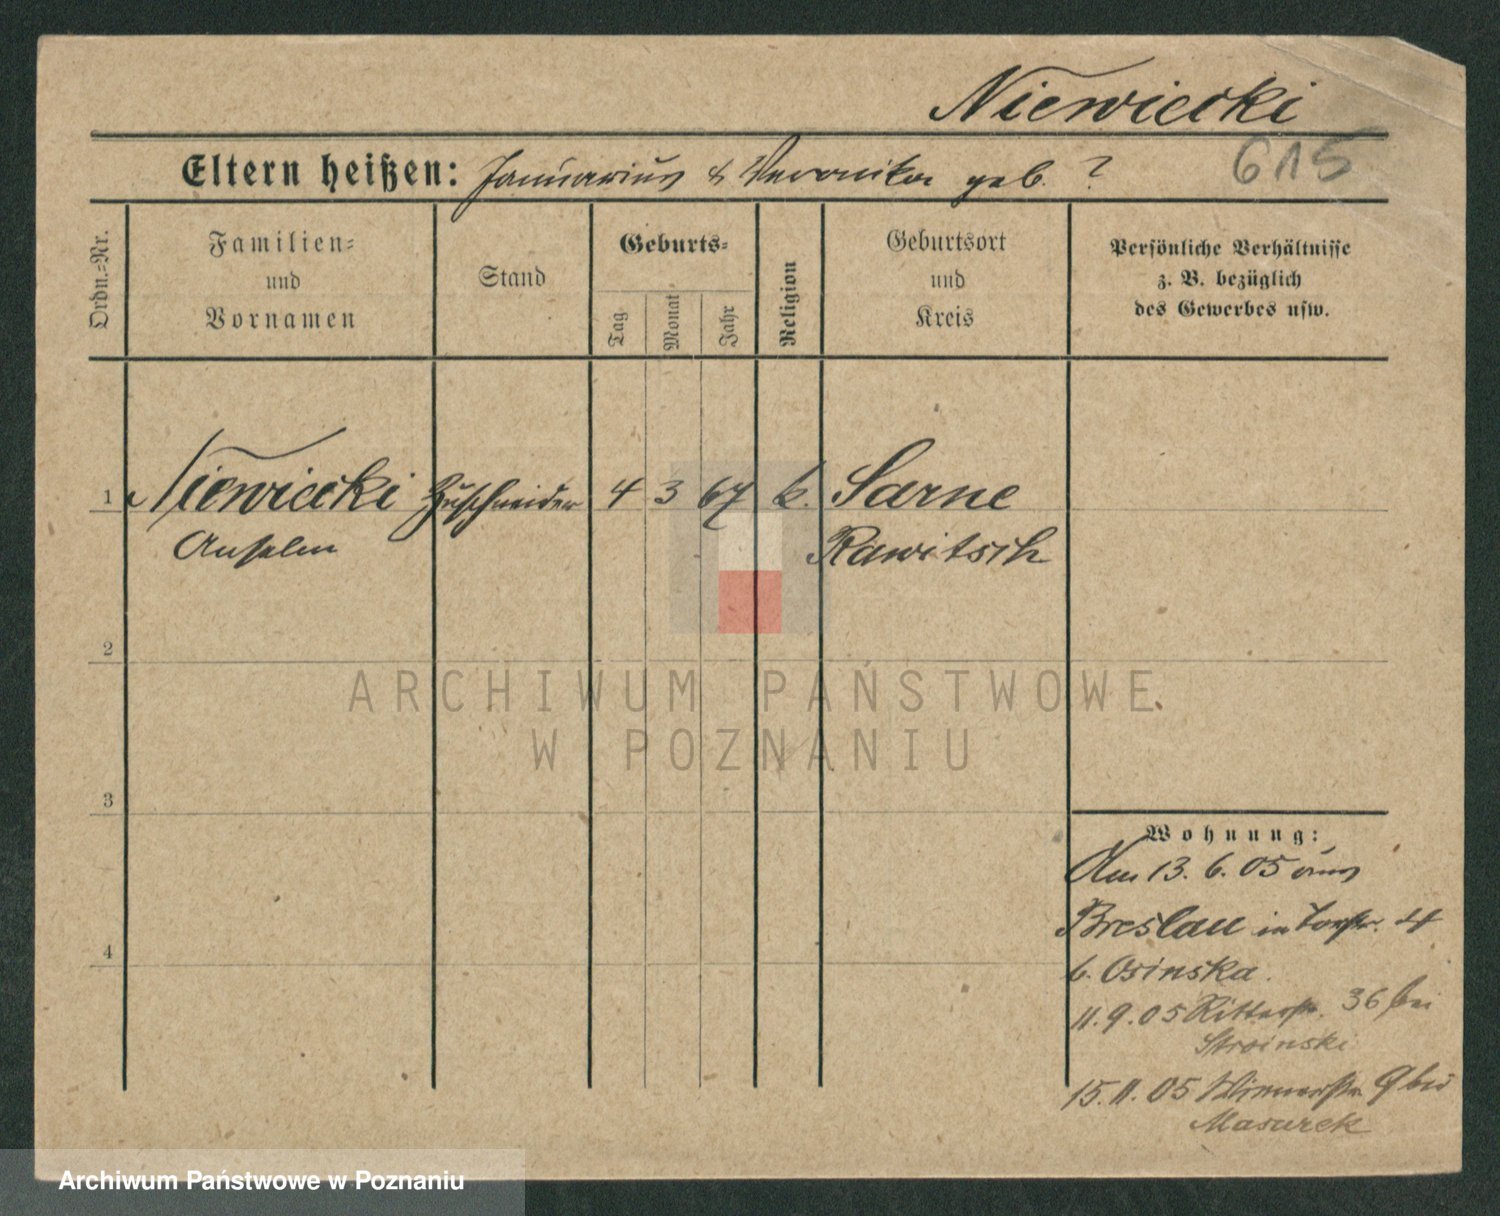 Niewiecki
615
Eltern heißen: Januarius & Veronika geb. ?
Ordn.=Nr.
Familien=
und
Vornamen
Stand
Geburts=
Tag
Monat
Jahr
Religion
Geburtsort
und
Kreis
Persönliche Verhältnisse
z. B. bezüglich
des Gewerbes usw.
1 Niewiecki Zuschneider 4 3 67 k. Sarne
Anselm Rawitsch
2
3
4
Wohnung:
Am 13. 6. 05 aus
Breslau in Torstr. 4
b. Osinska.
11. 9. 05 Ritterstr. 36 bei
Stroinski
15. 11. 05 9 bei
Masurek
ARCHIWUM PAŃSTWOWE
W POZNANIU
Archiwum Państwowe w Poznaniu